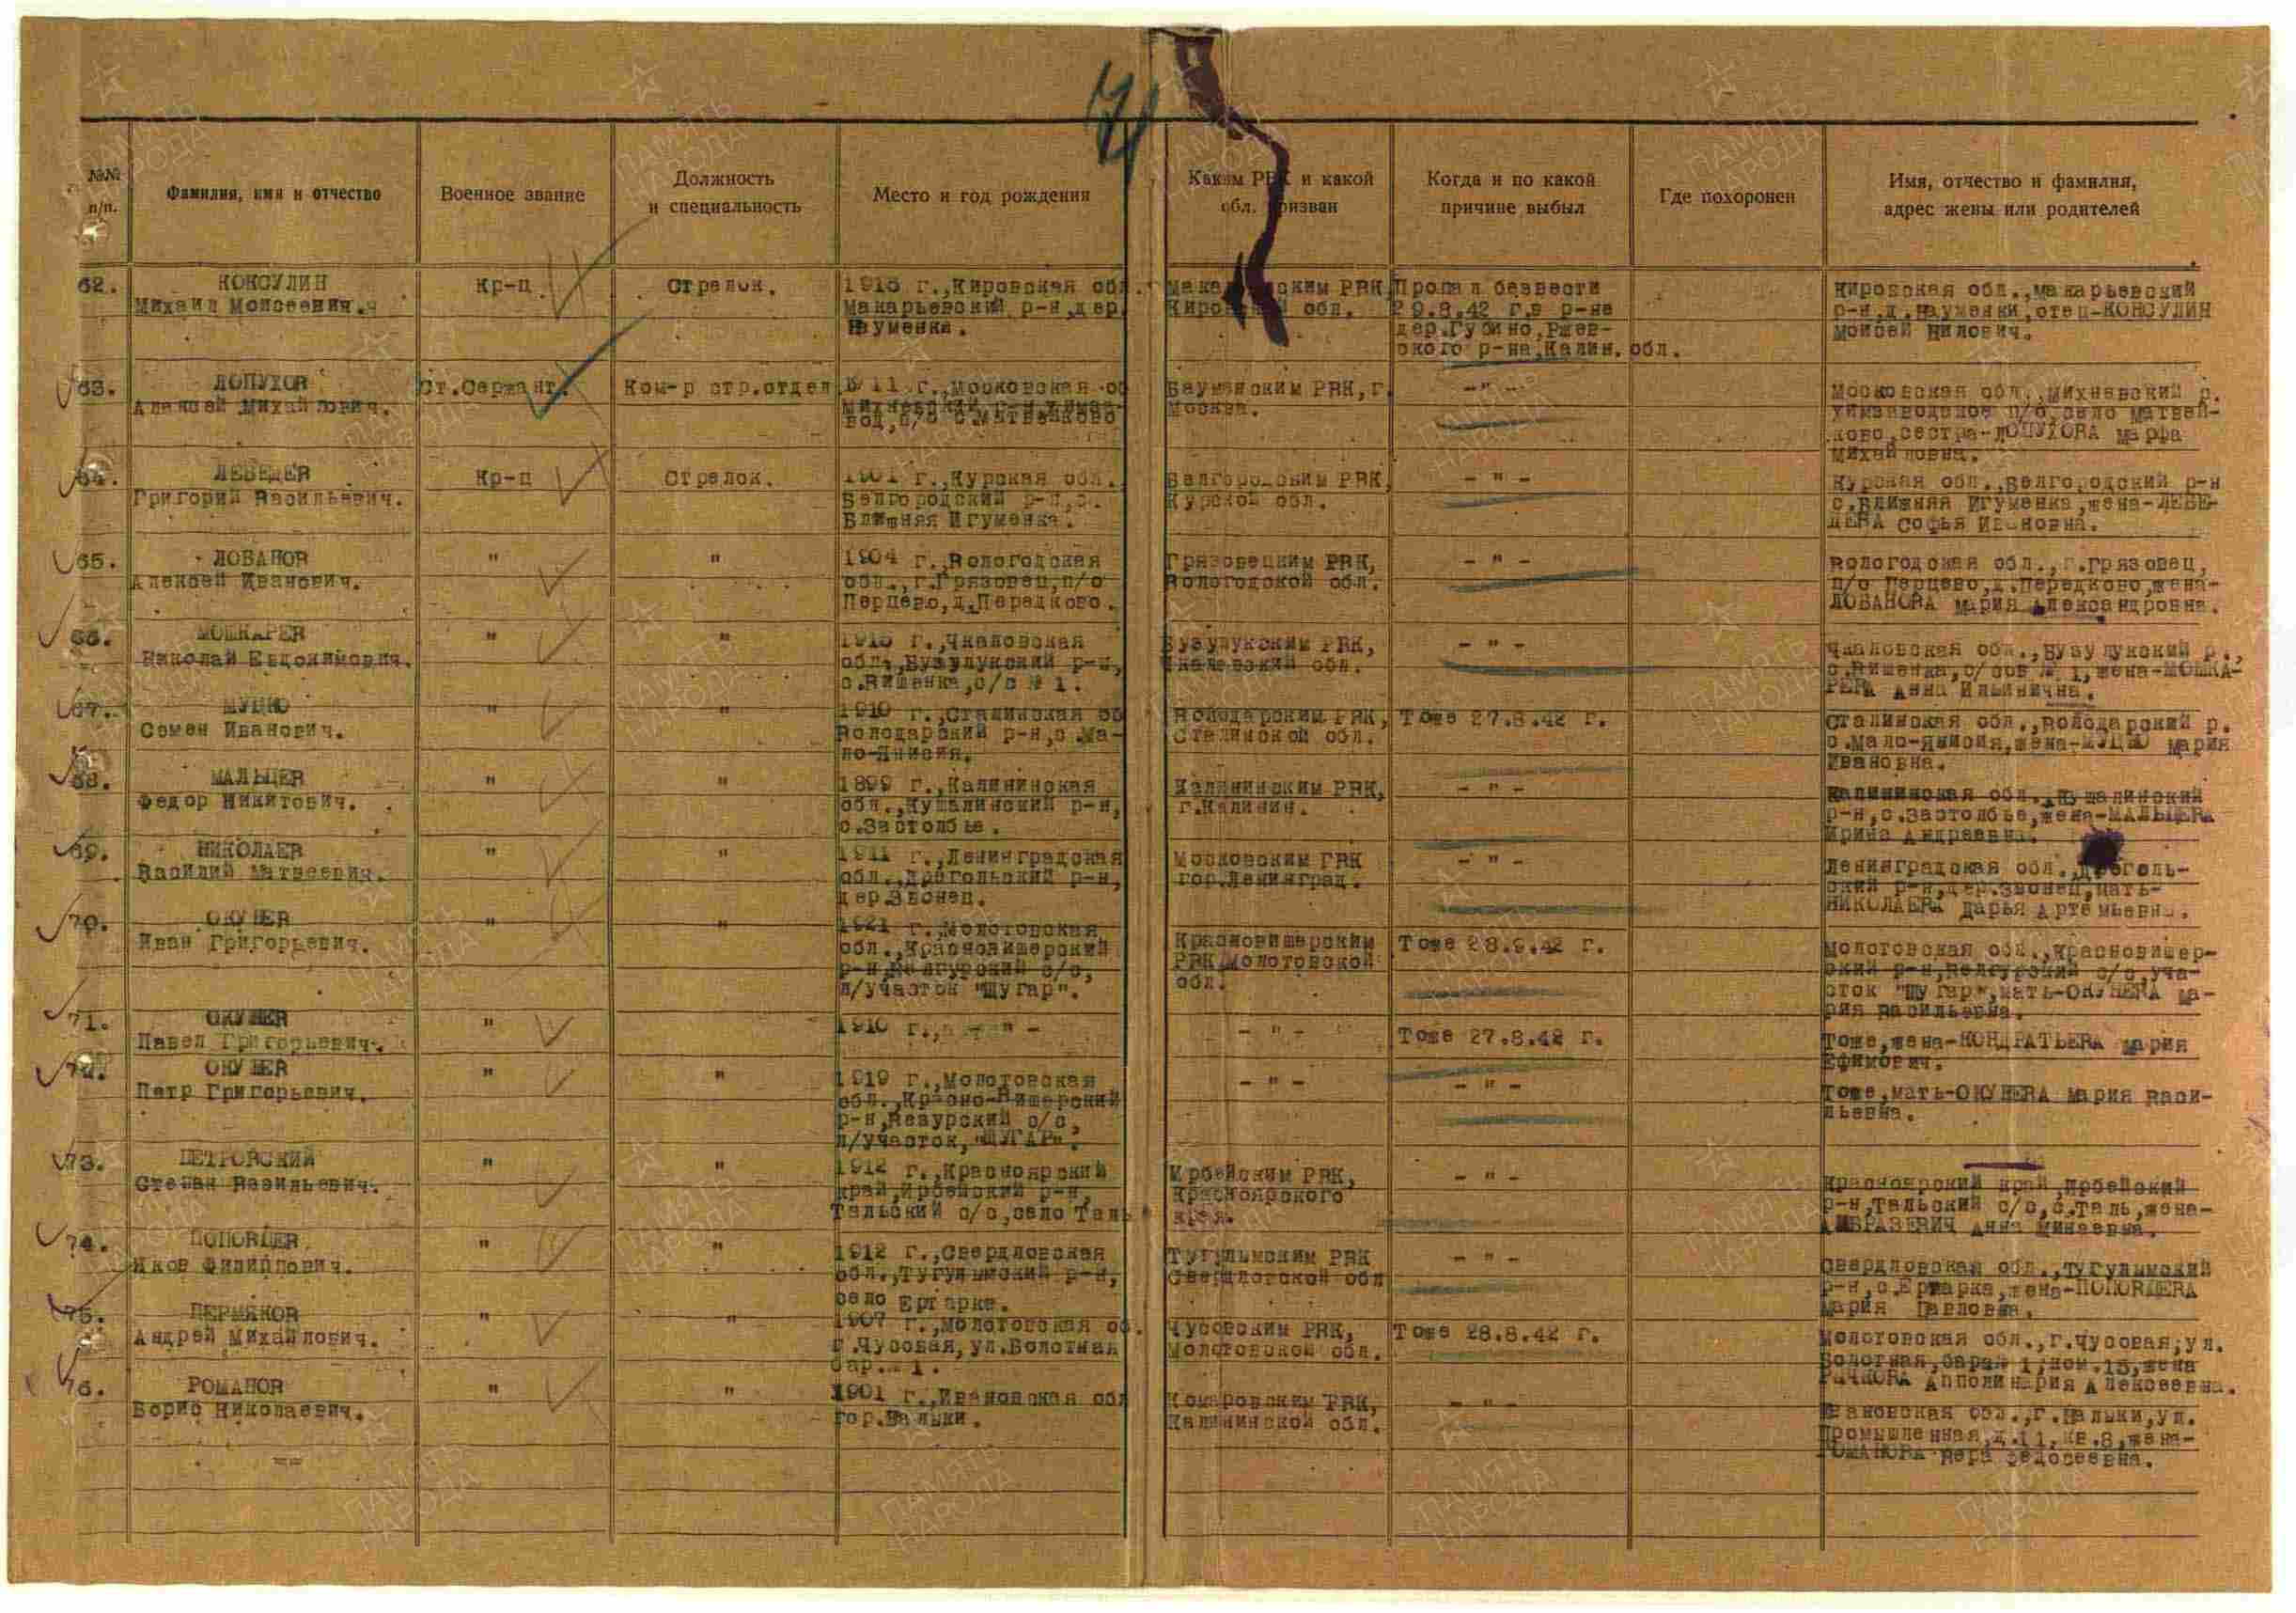 71
№№ п/п.
Фамилия, имя и отчество
Военное звание
Должность
и специальность
Место и год рождения
Каким РВК и какой
обл. призван
Когда и по какой
причине выбыл
Где похоронен
Имя, отчество и фамилия,
адрес жены или родителей
62.
КОКСУЛИН
Михаил Моисеевич.
Кр-ц
Стрелок.
г.,Кировская обл.
Макарьевский р-н,дер.
Науменки.
РВК
обл.
Пропал безвести
29.8.42 г.в р-не
дер.Губино,Ржев-
ского р-на,Калин.обл.
Кировская обл.,Макарьевский
р-н,д.Науменки,отец-КОКСУЛИН
Моисей Нилович.
63.
ЛОПУХОВ
Алексей Михайлович.
Ст.Сержант.
Ком-р стр.отдел
г.,Московская об
Михневский р-н
Бауманским РВК,г.
Москва.
-"-
Московская обл.,Михневский р.
п/о,село Матвей-
ково,сестра-ЛОПУХОВА Марфа
Михайловна.
64.
ЛЕБЕДЕВ
Григорий Васильевич.
Кр-ц
Стрелок.
1901 г.,Курская обл.
Белгородский р-н,с.
Ближняя Игуменка.
Белгородским РВК,
Курской обл.
-"-
Курская обл.,Белгородский р-н
с.Ближняя Игуменка,жена-ЛЕБЕ-
ДЕВА Софья Ивановна.
65.
ЛОБАНОВ
Алексей Иванович.
"
"
1904 г.,Вологодская
обл.,г.Грязовец,п/о
Перцево,д.Передково.
Грязовецким РВК,
Вологодской обл.
-"-
Вологодская обл.,г.Грязовец,
п/о Перцево,д.Передково,жена-
ЛОБАНОВА Мария Александровна.
66.
МОШКАРЕВ
Николай Евдокимович.
"
"
г.,Чкаловская
обл.,Бузулукский р-н,
с.Вишенка,с/с № 1.
Бузулукским РВК,
Чкаловский обл.
-"-
Чкаловская обл.,Бузулукский р.,
с.Вишенка,с/сов № 1,жена-МОШКА-
РЕВА Анна Ильинична.
67.
МУЦКО
Семен Иванович.
"
"
1910 г.,Сталинская об
Володарский р-н,с.Ма-
ло-Янисия.
Володарским РВК,
Сталинской обл.
Тоже 27.8.42 г.
Сталинская обл.,Володарский р.
с.Мало-Янисия,жена-МУЦКО Мария
Ивановна.
68.
МАЛЬЦЕВ
Федор Никитович.
"
"
1899 г.,Калининская
обл.,Кушалинский р-н,
с.Застолбье.
Калининским РВК,
г.Калинин.
-"-
Калининская обл.,Кушалинский
р-н,с.Застолбье,жена-МАЛЬЦЕВА
Ирина Андреевна.
69.
НИКОЛАЕВ
Василий Матвеевич.
"
"
1911 г.,Ленинградская
обл.,Дрегольский р-н,
дер.Звонец.
Московским РВК
гор.Ленинград.
-"-
Ленинградская обл.,Дреголь-
ский р-н,дер.Звонец,мать-
НИКОЛАЕВА Дарья Артемьевна.
70.
ОКУНЕВ
Иван Григорьевич.
"
"
1921 г.,Молотовская
обл.,Красновишерский
р-н,Велгурский с/с,
л/участок "Щугар".
Красновишерским
РВК,Молотовской
обл.
Тоже 28.9.42 г.
Молотовская обл.,Красновишер-
ский р-н,Велгурский с/с,уча-
сток "Щугар",мать-ОКУНЕВА Ма-
рия Васильевна.
71.
ОКУНЕВ
Павел Григорьевич.
"
1910 г., - " -
-"-
Тоже 27.8.42 г.
Тоже,жена-КОНДРАТЬЕВА Мария
Ефимович.
72.
ОКУНЕВ
Петр Григорьевич.
"
"
1919 г.,Молотовская
обл.,Красно-Вишерский
с/с,
л/участок,"ЩУГАР".
-"-
-"-
Тоже,мать-ОКУНЕВА Мария Васи-
льевна.
73.
ПЕТРОВСКИЙ
Степан Васильевич.
"
"
1912 г.,Красноярский
край,Ирбейский р-н,
Тальский с/с,село Таль
Ирбейским РВК,
Красноярского
края.
-"-
Красноярский край,Ирбейский
р-н,Тальский с/с,с.Таль,жена-
АМБРАЗЕВИЧ Анна Минаевна.
74.
ПОПОВЦЕВ
Яков Филиппович.
"
"
1912 г.,Свердловская
обл.,Тугулымский р-н,
село
Тугулымским РВК
Свердловской обл
-"-
Свердловская обл.,Тугулымский
жена-ПОПОВЦЕВА
Мария Павловна.
75.
ПЕРМЯКОВ
Андрей Михайлович.
"
"
1907 г.,Молотовская об.
г.Чусовая,ул.Болотная
бар.№ 1.
Чусовским РВК,
Молотовской обл.
Тоже 28.8.42 г.
Молотовская обл.,г.Чусовая,ул.
Болотная,барак 1,ком.15,жена
Апполинария Алексеевна.
76.
РОМАНОВ
Борис Николаевич.
"
"
1901 г.,Ивановская обл
РВК,
Калининской обл.
-"-
Ивановская обл.,
Промышленная,д.11,кв.8,жена-
РОМАНОВА Вера Федосеевна.
ПАМЯТЬ НАРОДА